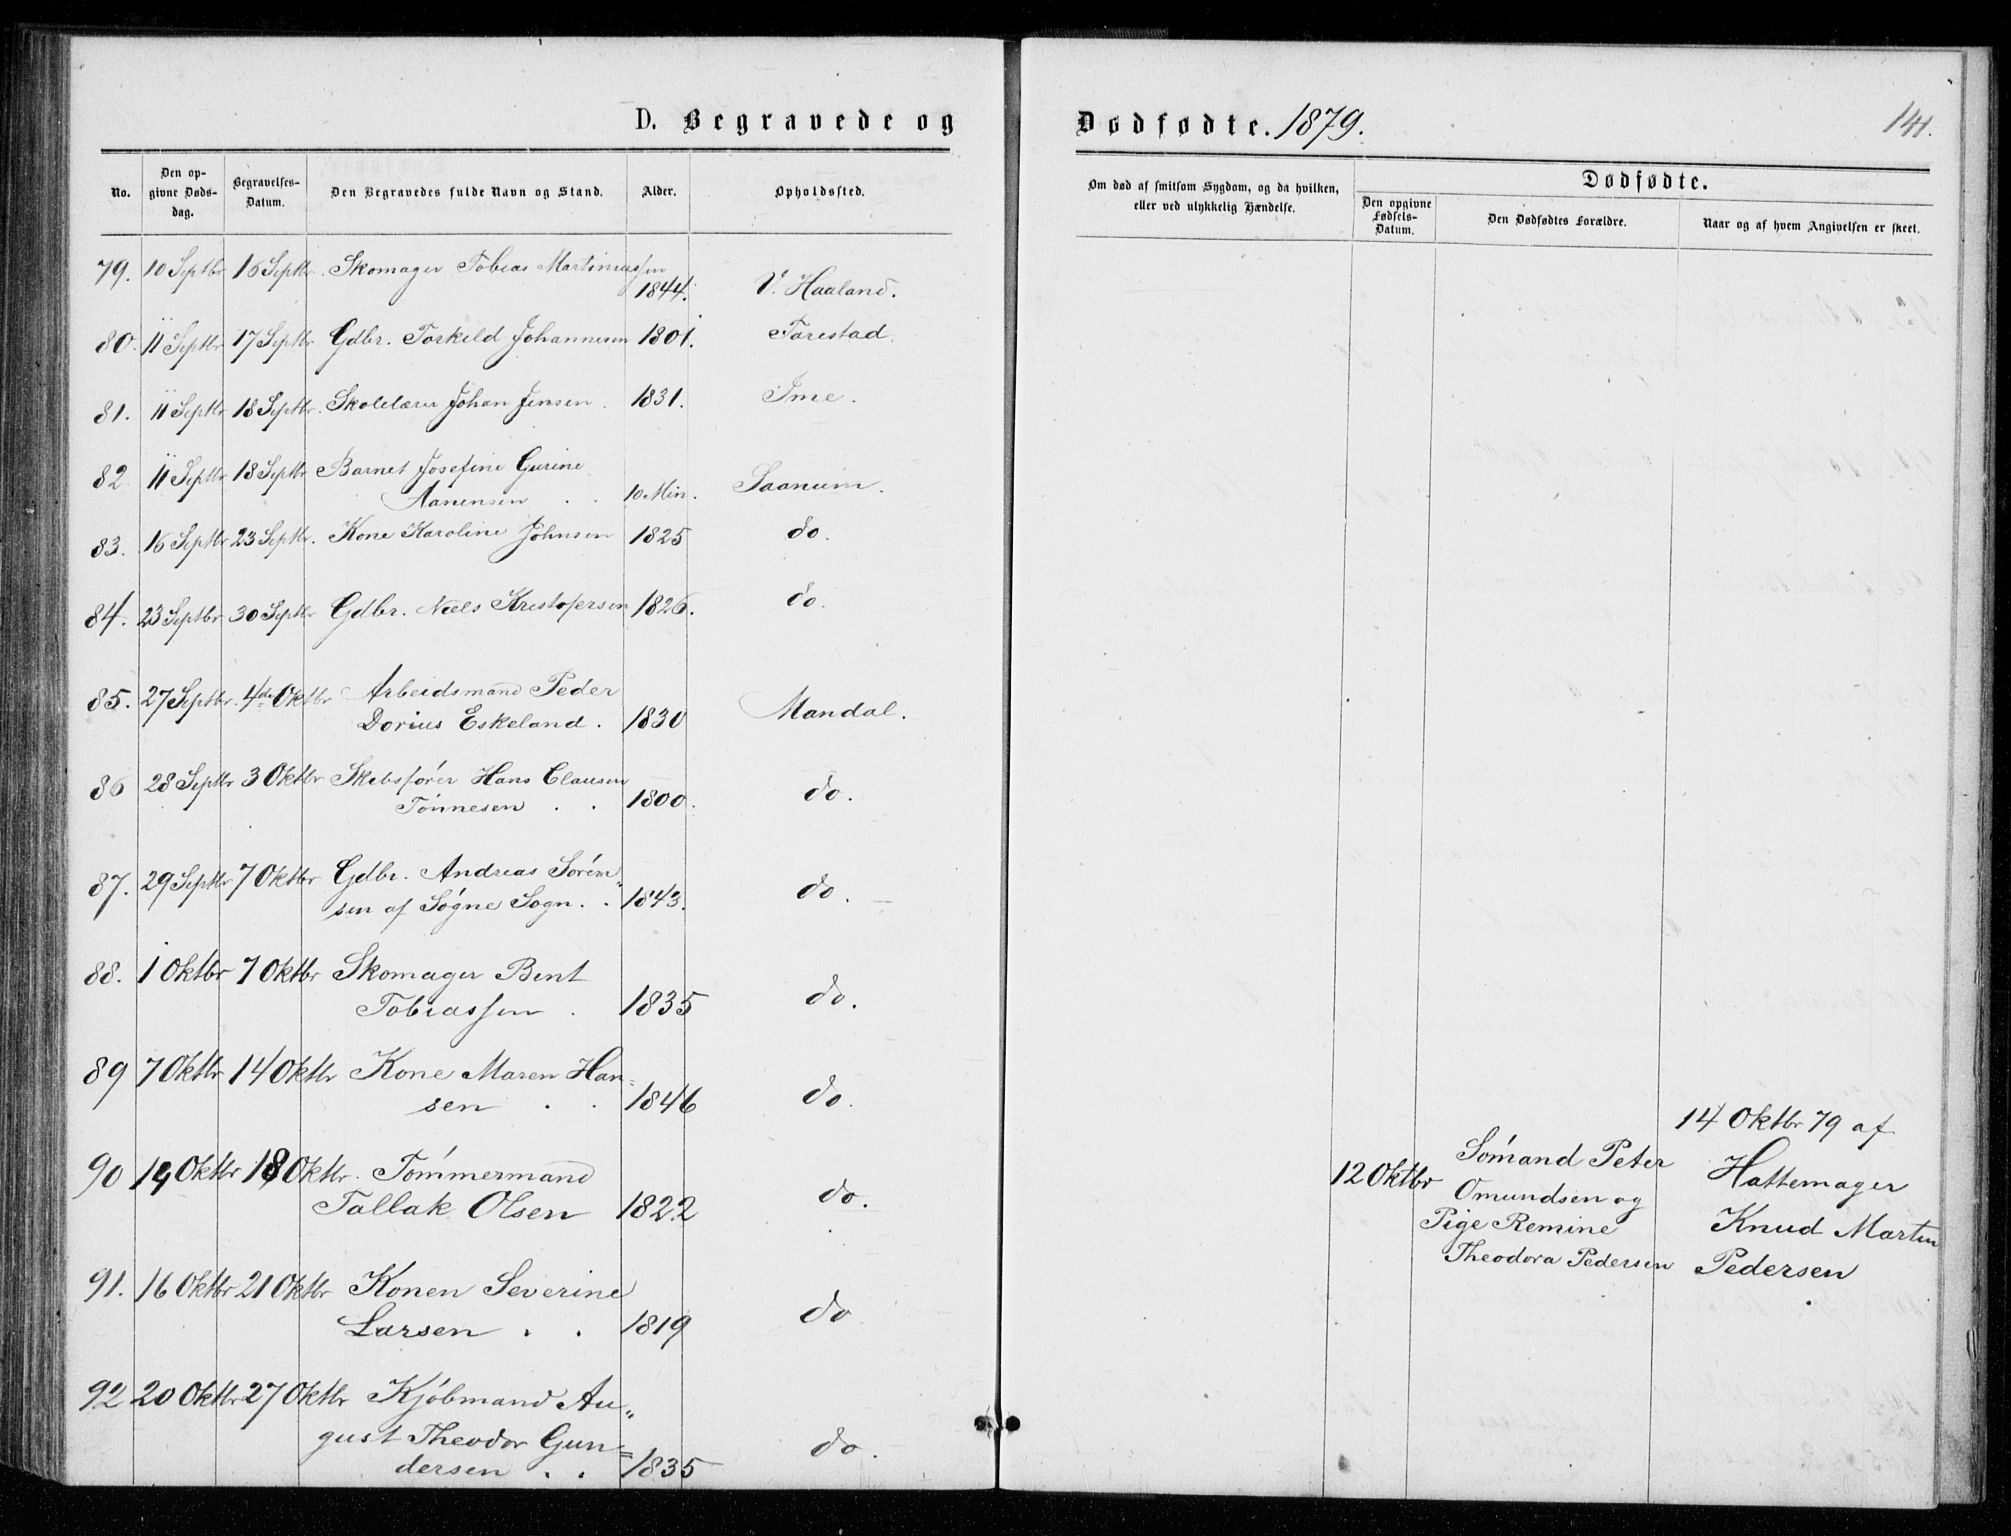 D. Begravede og
Dødfødte. 1879.
141.
No.
Den opgivne Døds-dag.
Begravelses-Datum.
Den Begravedes fulde Navn og Stand.
Alder.
Opholdssted.
Om død af smitsom Sygdom, og da hvilken,
eller ved ulykkelig Hændelse.
Dødfødte.
Den opgivne Fødsels-Datum.
Den Dødfødtes Forældre.
Naar og af hvem Angivelsen er skeet.
79. 10 Septbr 16 Septbr. Skomager Tobias Martiniussen
1844. V. Haaland.
80. 11 Septbr 17 Septbr. Gdbr. Torkeld Johannesen 1801. Tarestad.
81. 11 Septbr 18 Septbr. Skolelærer Johan Jensen. 1831. Ime.
82. 11 Septbr 18 Septbr Barnet Josefine Gurine
Aanensen . . 10 Min. Saanum.
83. 16 Septbr 23 Septbr. Kone Karoline Johnsen 1825 do.
84. 23 Septbr 30 Septbr Gdbr. Niels Kristofersen 1826. do.
85. 27 Septbr. 4de Oktbr Arbeidsmand Peder
Dorius Eskeland. 1830 Mandal.
86 28 Septbr 3 Oktbr Skibsfører Hans Clausen
Tönnesen . . 1800. do.
87. 29 Septbr 7 Oktbr Gdbr. Andreas Sören„
sen af Søgne Sogn. . 1843. do.
88. 1 Oktbr 7 Oktbr Skomager Bent
Tobiassen . 1835 do.
89 7 Oktbr 14 Oktbr Kone Maren Han=
sen . . 1846 do.
90 14 Oktbr 18 Oktbr. Tömmermand
Tallak Olsen 1822 do.
12 Oktbr
Sömand Peter
Omundsen og
Pige Remine
Theodora Pedersen
14 Oktbr 79 af
Hattemager
Knud Martin
Pedersen
91. 16 Oktbr 21 Oktbr Konen Severine
Larsen . . 1819 do
92 20 Oktbr 27 Oktbr Kjöbmand Au„
gust Theodor Gun=
dersen . . 1835 do.